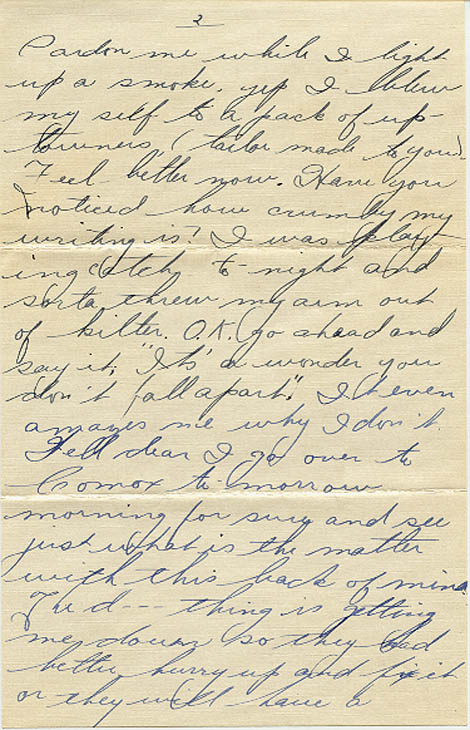 2
Pardon me while I light
up a smoke. yep I blew
my self to a pack of up-
towners, (tailor made to you)
Feel better now. Have you
noticed how crumby my
writing is? I was play-
ing catch to-night and
sorta threw my arm out
of kilter. O.K. go ahead and
say it. "It's a wonder you
don't fall apart". It even
amazes me why I don't.
Well dear I go over to
Comox to-morrow
morning for sure and see
just what is the matter
with this back of mine.
The d--- thing is getting
me down so they had
better hurry up and fix it
or they will have a